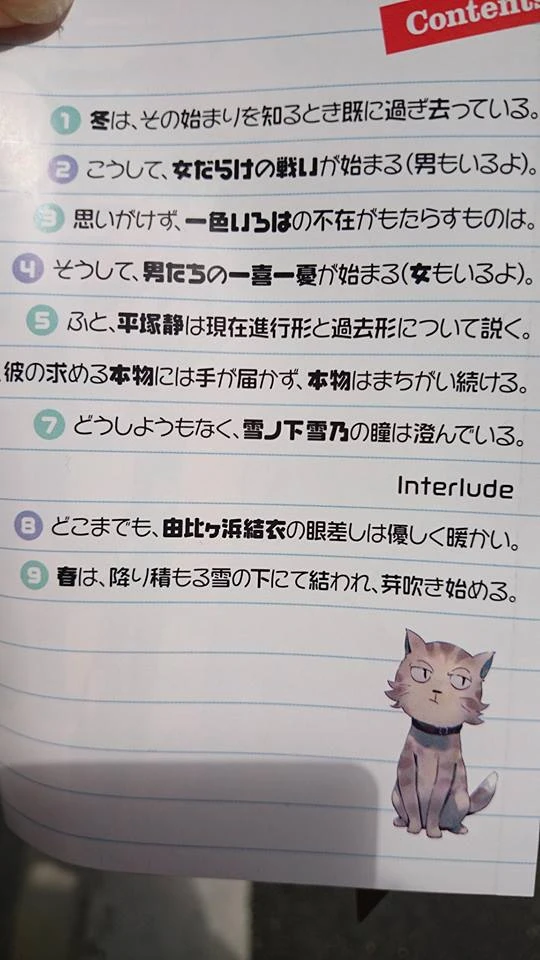 Contents
1 冬は、その始まりを知るとき既に過ぎ去っている。
2 こうして、女だらけの戦いが始まる(男もいるよ)。
3 思いがけず、一色いろはの不在がもたらすものは。
4 そうして、男たちの一喜一憂が始まる(女もいるよ)。
5 ふと、平塚静は現在進行形と過去形について説く。
彼の求める本物には手が届かず、本物はまちがい続ける。
7 どうしようもなく、雪ノ下雪乃の瞳は澄んでいる。
Interlude
8 どこまでも、由比ヶ浜結衣の眼差しは優しく暖かい。
9 春は、降り積もる雪の下にて結われ、芽吹き始める。